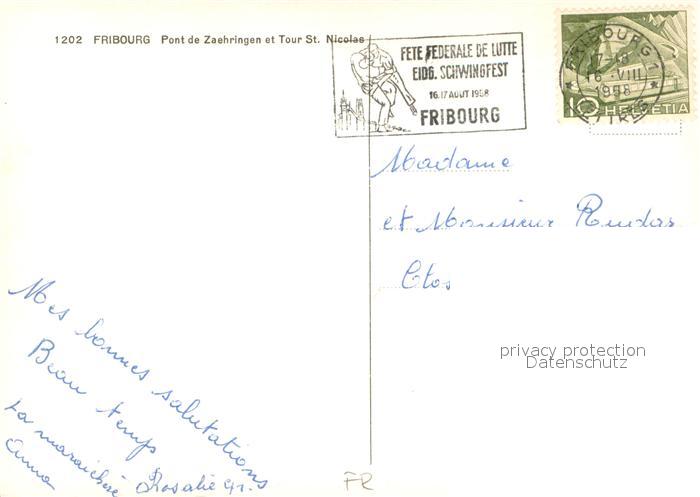 1202 FRIBOURG Pont de Zaehringen et Tour St. Nicolas
FETE FEDERALE DE LUTTE
EIDG. SCHWINGFEST
16.17 AOUT 1958
FRIBOURG
FRIBOURG 1
17-18
16. VIII
1958
10 HELVETIA
Madame
et Monsieur
Clos
privacy protection
Datenschutz
Mes bonnes salutations
Beau temps
La maraichère Rosalie
Anna
FR